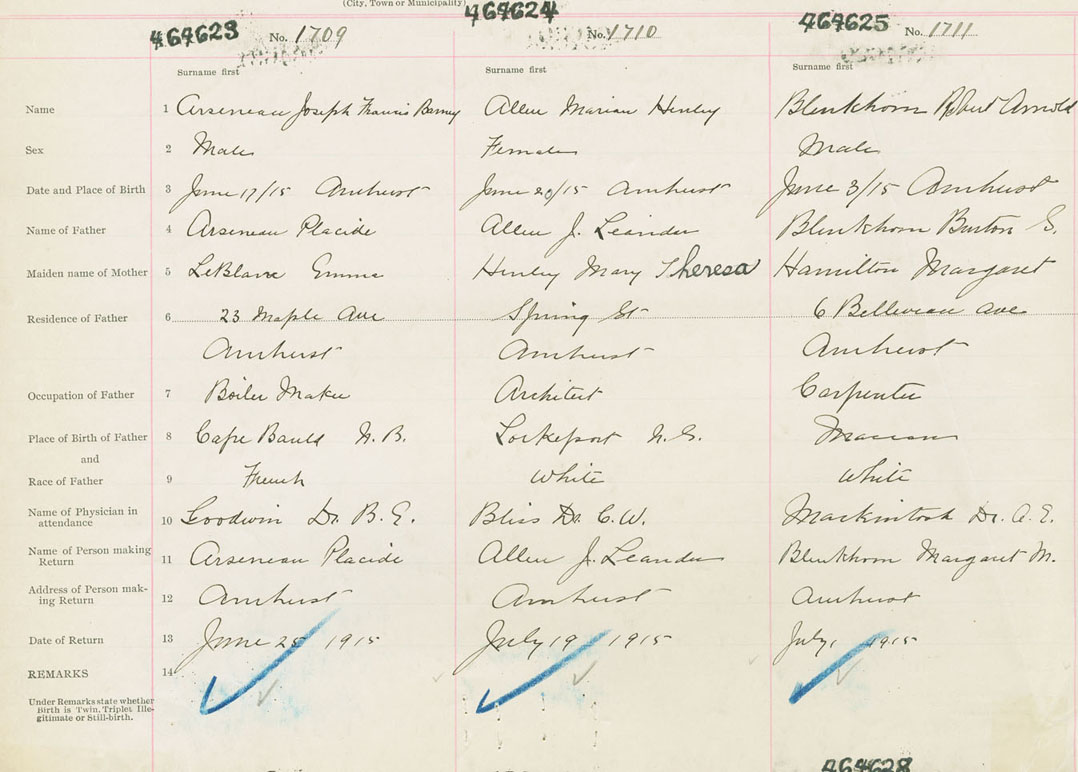 (City, Town or Municipality)
464623 No. 1709 464624 No. 1710 464625 No. 1711
Surname first Surname first Surname first
Name 1 Arseneau Joseph Francis Barney Allen Marian Henley Blenkhorn Robert Arnold
Sex 2 Male Female Male
Date and Place of Birth 3 June 17/15 Amherst June 20/15 Amherst June 3/15 Amherst
Name of Father 4 Arseneau Placide Allen J. Leander Blenkhorn Burton S.
Maiden name of Mother 5 LeBlanc Emma Henley Mary Theresa Hamilton Margaret
Residence of Father 6 23 Maple Ave Spring St 6 Belleveau ave
Amherst Amherst Amherst
Occupation of Father 7 Boiler Maker Architect Carpenter
Place of Birth of Father 8 Cape Bauld N.B. Lockeport N.S. Maccan
and
Race of Father 9 French White White
Name of Physician in
attendance 10 Goodwin Dr. B.E. Bliss Dr. C.W. Mackintosh Dr. A.E.
Name of Person making
Return 11 Arseneau Placide Allen J. Leander Blenkhorn Margaret M.
Address of Person mak-
ing Return 12 Amherst Amherst Amherst
Date of Return 13 June 25 1915 July 19 1915 July 1 1915
REMARKS 14
Under Remarks state whether
Birth is Twin, Triplet, Ille-
gitimate or Still-birth.
464628